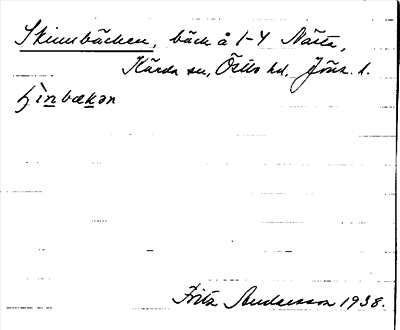 Skinnbäcken, bäck å 1-4 Nästa,
Kärda sn, Östbo hd, Jönk. l.
ʃìnbækən
Fritz Andersson 1938.